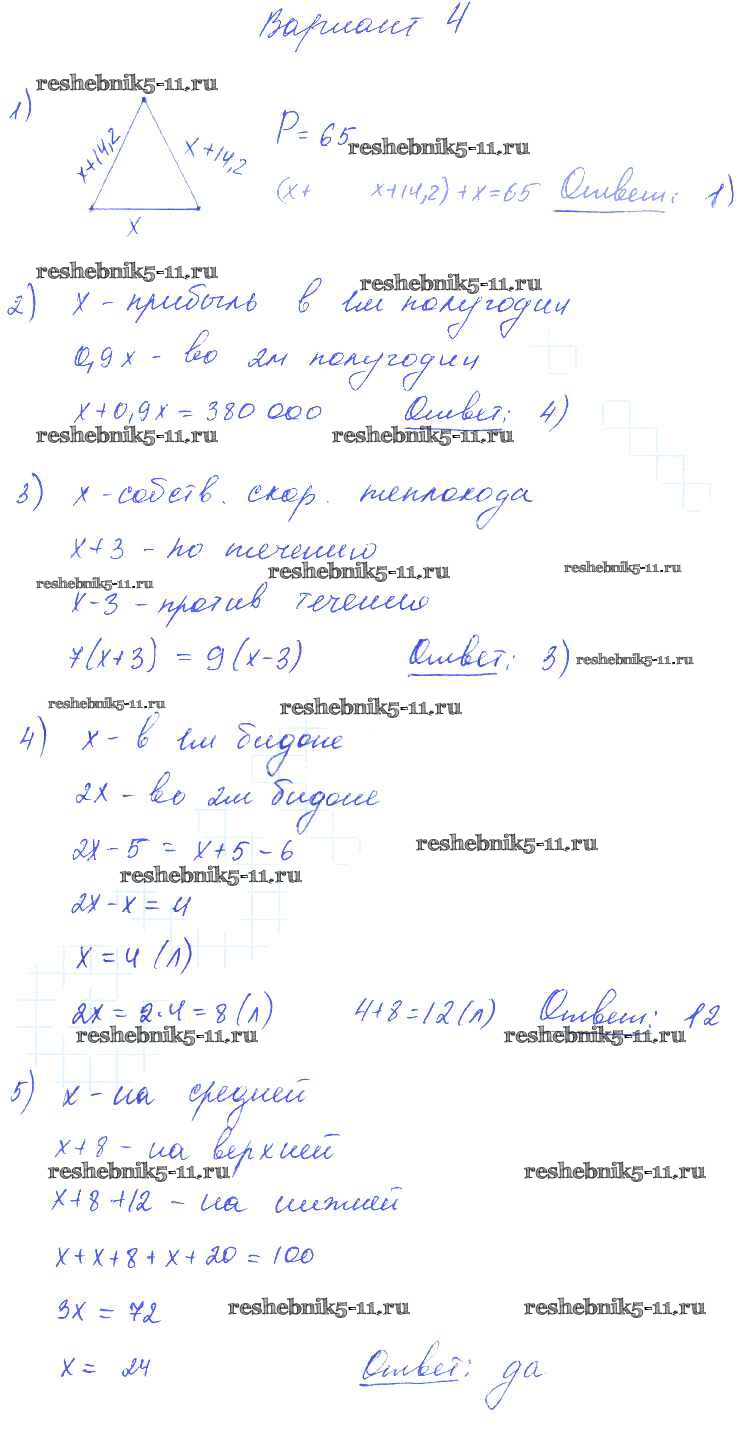 Вариант 4
reshebnik5-11.ru
1)
x+14,2
x+14,2
x
P=65
reshebnik5-11.ru
(x+ x+14,2)+x=65 Ответ: 1)
reshebnik5-11.ru
reshebnik5-11.ru
2) x - прибыль в 1м полугодии
0,9x - во 2м полугодии
x+0,9x=380 000 Ответ: 4)
reshebnik5-11.ru
reshebnik5-11.ru
3) x - собств. скор. теплохода
x+3 - по течению
reshebnik5-11.ru
reshebnik5-11.ru
reshebnik5-11.ru
x-3 - против течению
7(x+3) = 9(x-3) Ответ: 3)
reshebnik5-11.ru
reshebnik5-11.ru
reshebnik5-11.ru
4) x - в 1м бидоне
2x - во 2м бидоне
2x-5 = x+5-6
reshebnik5-11.ru
reshebnik5-11.ru
2x-x=4
x=4 (л)
2x=2·4=8(л) 4+8=12(л) Ответ: 12
reshebnik5-11.ru
reshebnik5-11.ru
5) x - на средней
x+8 - на верхней
reshebnik5-11.ru
reshebnik5-11.ru
x+8+12 - на нижней
x+x+8+x+20=100
3x=72
reshebnik5-11.ru
reshebnik5-11.ru
x= 24 Ответ: да